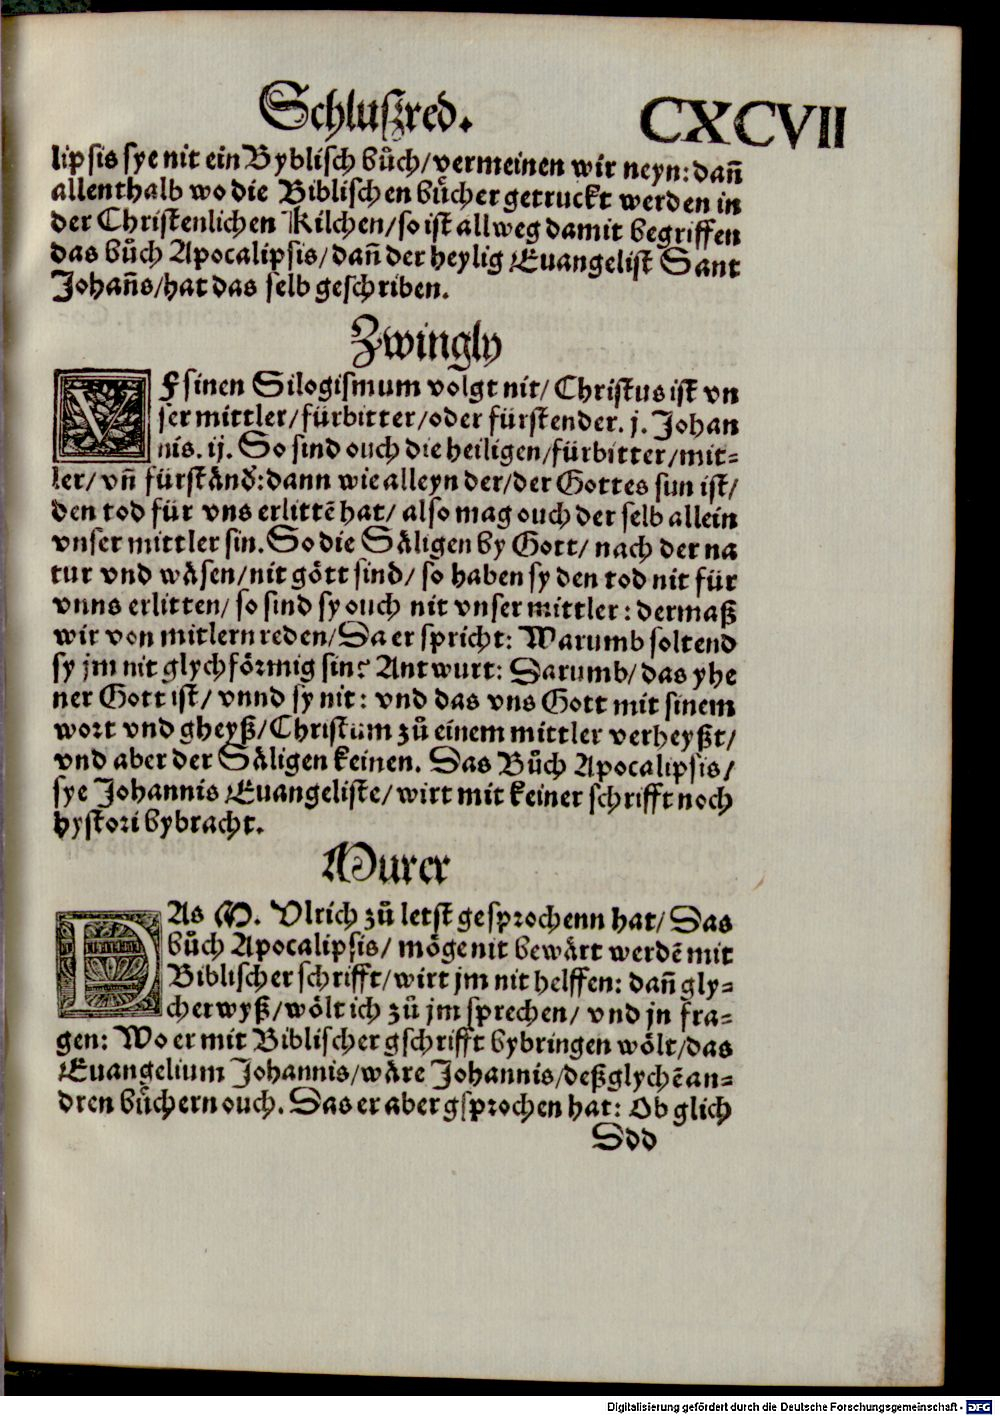 Schluſzred.
CXCVII
lipsis sye nit ein Byblisch bůch/vermeinen wir neyn: dañ
allenthalb wo die Biblischen bůcher getruckt werden in
der Christenlichen Kilchen/so ist allweg damit begriffen
das bůch Apocalipsis/dañ der heylig Euangelist Sant
Johañs/hat das selb geschriben.
Zwingly
VF sinen Silogismum volgt nit/ Christus ist vn
ser mittler/fürbitter/oder fürstender. j. Johan
nis. ij. So sind ouch die heiligen/fürbitter/mit-
ler/ vñ fürständ: dann wie alleyn der/der Gottes sun ist/
den tod für vns erlittē hat/ also mag ouch der selb allein
vnser mittler sin. So die Säligen by Gott/ nach der na
tur vnd wäsen/nit gött sind/ so haben sy den tod nit für
vnns erlitten/ so sind sy ouch nit vnser mittler: dermaß
wir von mitlern reden/Da er spricht: Warumb soltend
sy jm nit glychförmig sin? Antwurt: Darumb/ das yhe
ner Gott ist/ vnnd sy nit: vnd das vns Gott mit sinem
wort vnd gheyß/Christum zů einem mittler verheyßt/
vnd aber der Säligen keinen. Das Bůch Apocalipsis/
sye Johannis Euangeliste/wirt mit keiner schrifft noch
hystori bybracht.
Murer
DAs M. Vlrich zů letst gesprochenn hat/ Das
bůch Apocalipsis/ möge nit bewärt werdē mit
Biblischer schrifft/wirt jm nit helffen: dañ gly-
cher wyß/wölt ich zů jm sprechen/ vnd jn fra-
gen: Wo er mit Biblischer gschrifft bybringen wölt/das
Euangelium Johannis/wäre Johannis/deßglychē an-
dren bůchern ouch. Das er aber gsprochen hat: Ob glich
Ddd
Digitalisierung gefördert durch die Deutsche Forschungsgemeinschaft - DFG